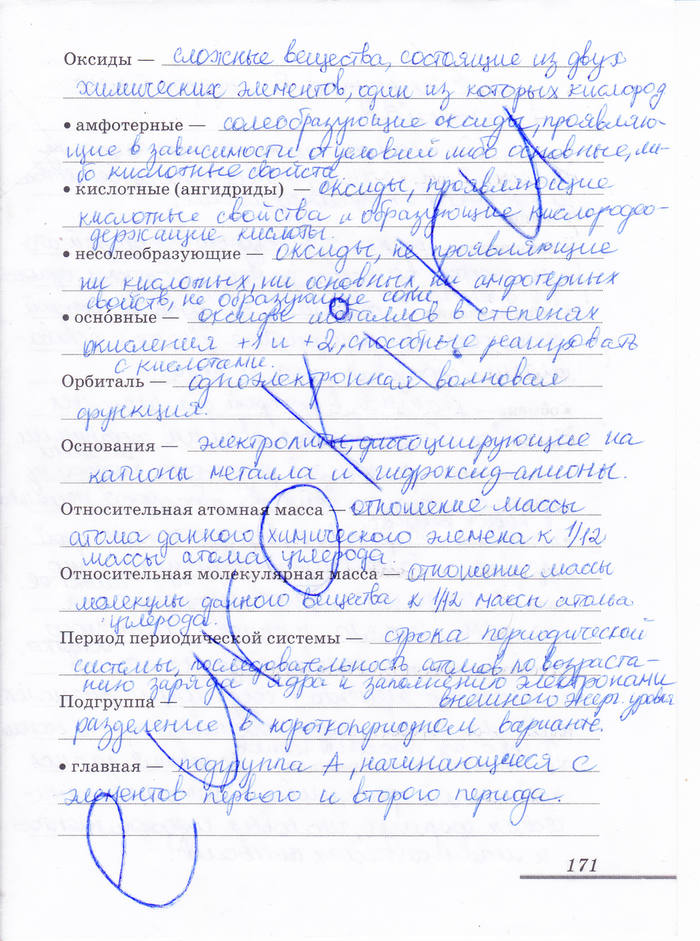 Оксиды — сложные вещества, состоящие из двух
химических элементов, один из которых кислород
• амфотерные — солеобразующие оксиды, проявляю-
щие в зависимости от условий либо основные, ли-
бо кислотные свойства.
• кислотные (ангидриды) — оксиды, проявляющие
кислотные свойства и образующие кислородсо-
держащие кислоты.
• несолеобразующие — оксиды, не проявляющие
ни кислотных, ни основных, ни амфотерных
свойств, не образующие соли.
• оснóвные — оксиды металлов в степенях
окисления +1 и +2, способные реагировать
с кислотами.
Орбиталь — одноэлектронная волновая
функция.
Основания — электролиты, диссоциирующие на
катионы металла и гидроксид-анионы.
Относительная атомная масса — отношение массы
атома данного химического элемена к 1/12
массы атома углерода.
Относительная молекулярная масса — отношение массы
молекулы данного вещества к 1/12 массы атома
углерода.
Период периодической системы — строка периодической
системы, последовательность атомов по возраста-
нию заряда ядра и заполнению электронами
внешнего энерг. уровня
Подгруппа —
разделение в короткопериодном варианте.
• главная — подгруппа А, начинающиеся с
элементов первого и второго периода.
171